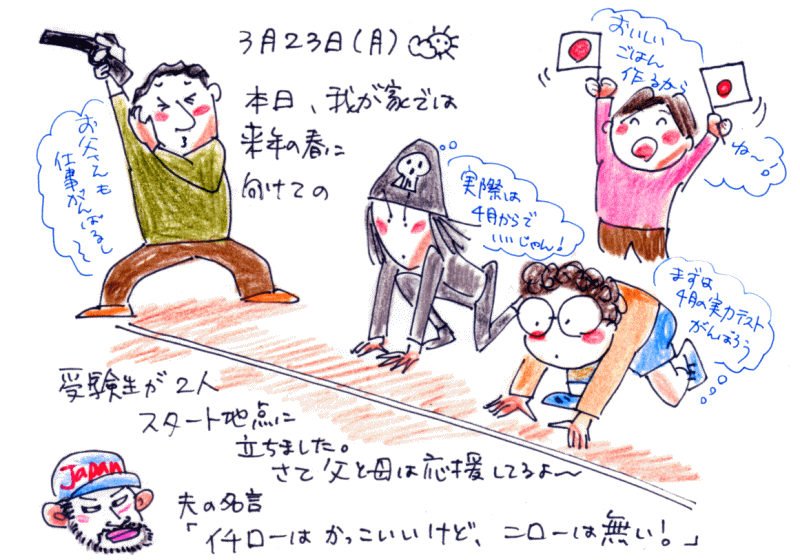 3月23日(月)
本日、我が家では
来年の春に
向けての
お父さんも
仕事がんばるし
〜
おいしい
ごはん
作るから
ね〜!
実際は
4月からで
いいじゃん!
まずは
4月の実力テスト
がんばろう
受験生が2人
スタート地点に
立ちました。
さて父と母は応援してるよ〜
Japan
夫の名言
「イチローはかっこいいけど、ニローは無い!」